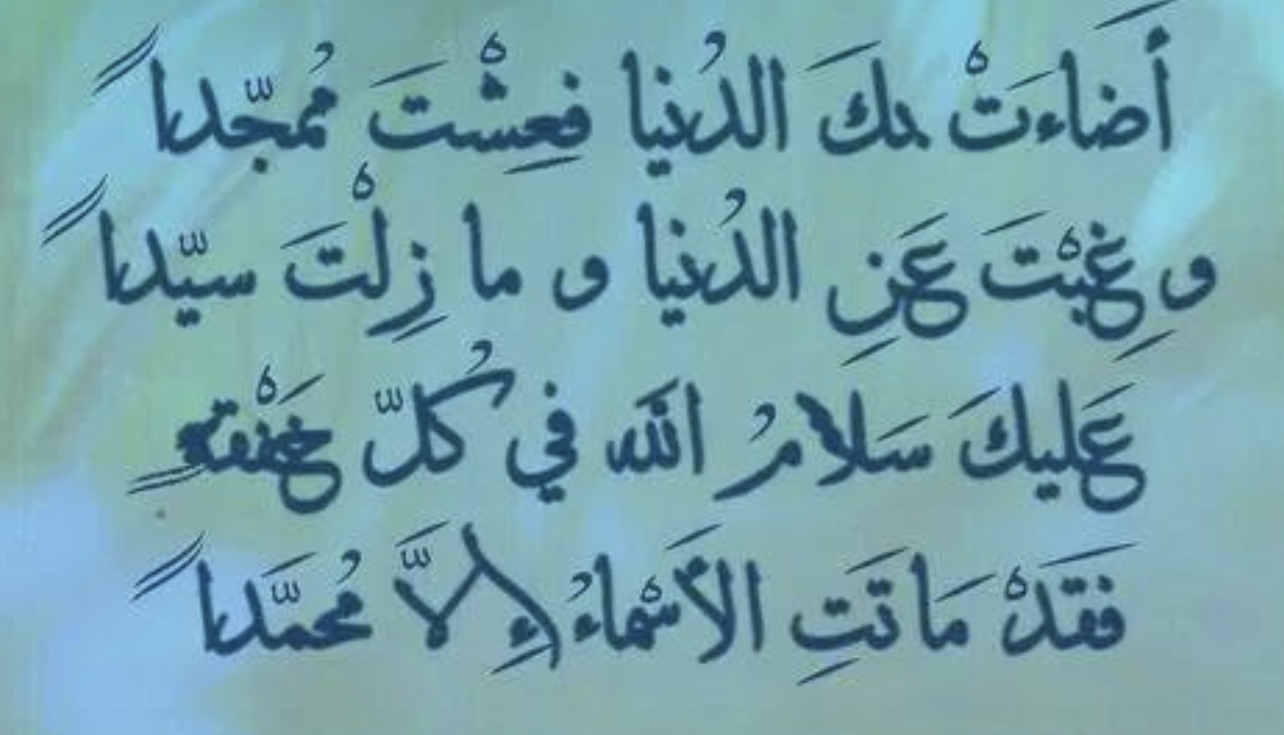 أَضاءَتْ بكَ الدُنيا فعِشْتَ مُمجّداً
و غِبْتَ عَنِ الدُنيا و ما زِلْتَ سيّداً
عَليكَ سَلامُ الله في كُلّ خَفْقةٍ
فقَدْ مَاتَتِ الأَسْماءُ إِلاَّ مُحمَّداً